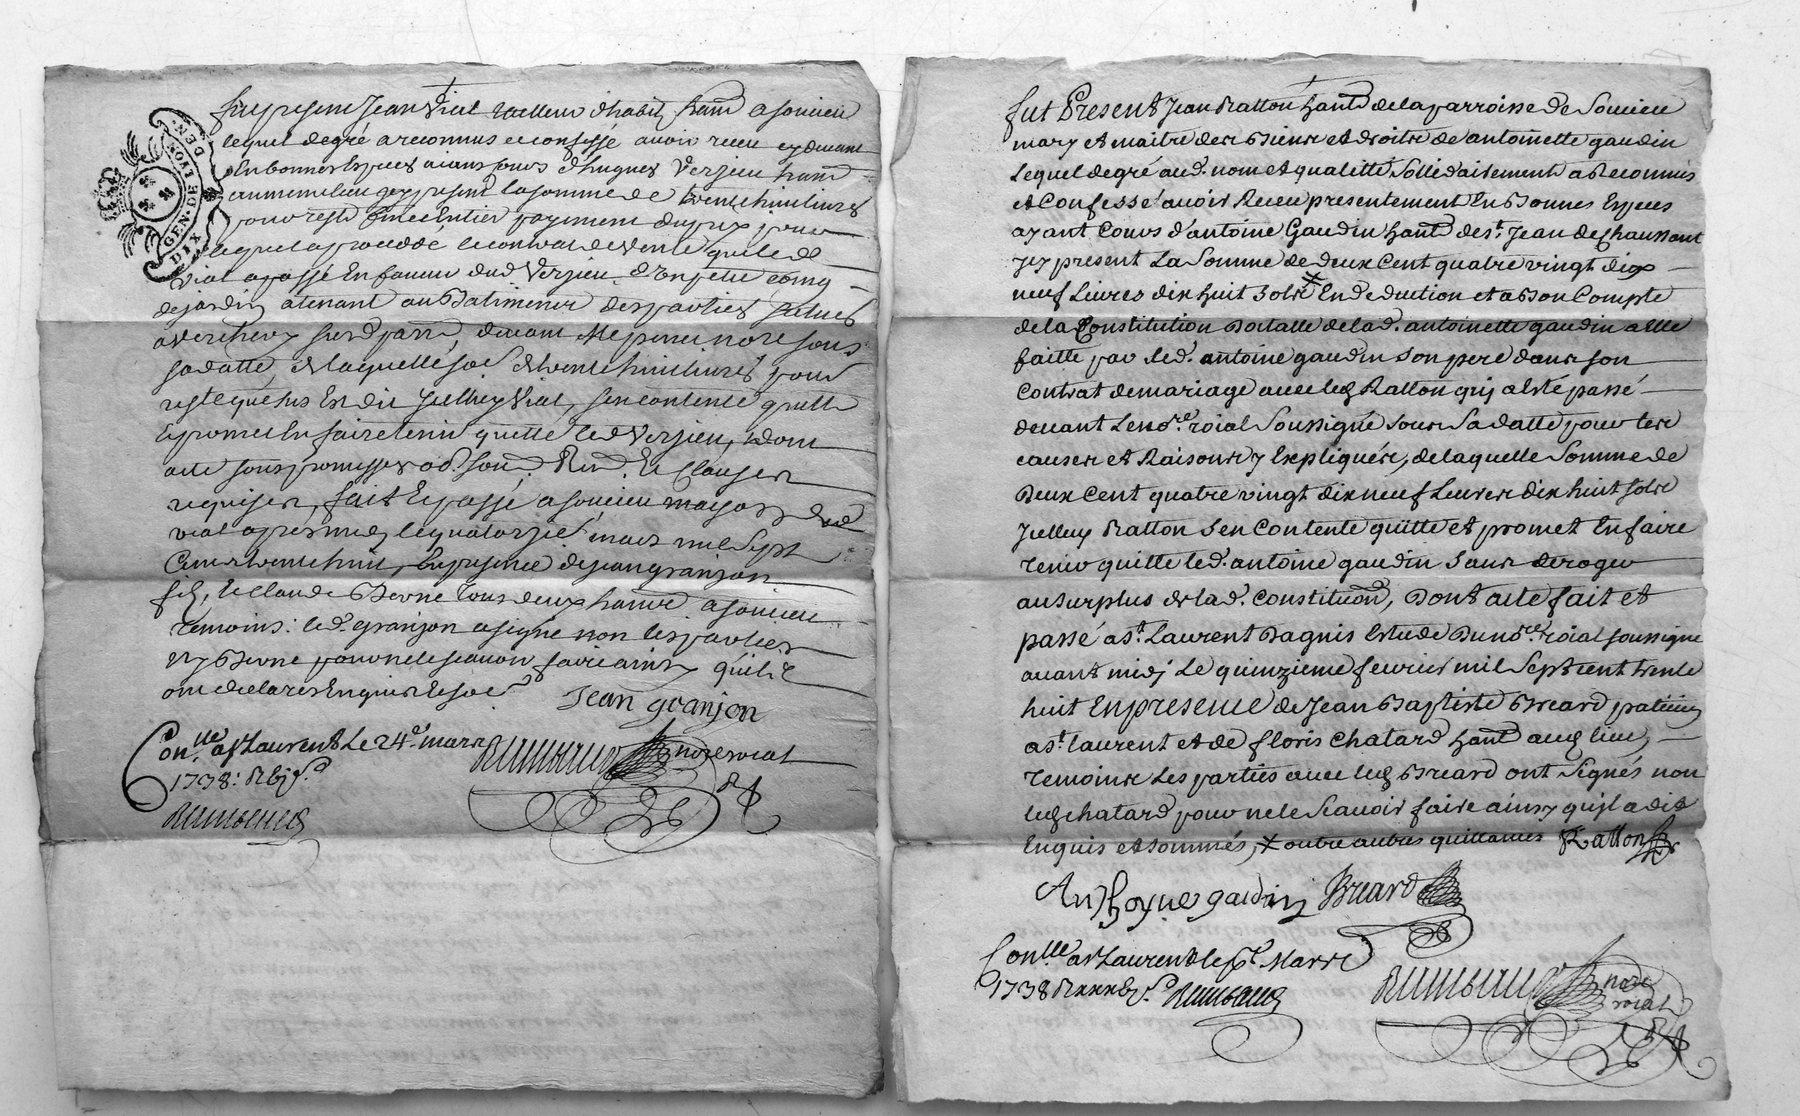 GEN. DE LYON.
DIX DEN.
fut present Jean Vial tailleur d'habits hant a soucieu
lequel degré a reconnus et confessé avoir receu cy devant
En bonnes Especes aians cours d'hugues Verzieu hant
au meme lieu icy present la somme de trente huit livres
pour reste fin et Entier payement du prix pour
lequel a procuddé le contrat de vente que led
vial a passé En faveur dud Verzieu d'un petit
de jardin atenant au Batiment des parties situés
a verchery surd parr devant Me nore sous
sa datte, de laquelle soe de trente huit livres pour
reste que sus Est dit Jcelluy Vial, sen contente quitte
Et promet En faire tenir quitte led Verzieu, dont
acte sous promesses obd soud Rend Et Clauses
requises, fait Et passé a soucieu maison dud
vial apres midy le quatorzie mars mil sept
Cent trente huit, En presence de jean granjon
fils, Et Claude Berne tous deux hants a soucieu
temoins: led granjon a signé non les parties
ny Berne pour ne le scavoir faire ainsy quils
ont declarés Enquis Et soé
Jean granjon
Conlle a st Laurent Le 24e mars
nore roial
1738:
fut Present Jean Ratton hant de la parroisse de Soucieu
mary et maitre des Biens et droits de antoinette gaudin
Lequel degré aud. nom et qualitté Sollidairement a Reconnus
et Confessé avoir Receu presentement En Bonnes Especes
ayant Cours d'antoine Gaudin hant de st. Jean de Chaussant
Jcy present La Somme de deux Cent quatre vingt dix
neuf Livres dix huit Sols ⨯ En deduction et a Bon Compte
de la Constitution Dottalle de lad. antoinette gaudin a Elle
faitte par led. antoine gaudin son pere dans son
Contrat de mariage avec led Ratton qui a Esté passé
devant Le nore. roial Soussigné sous Sa datte pour les
causes et Raisons y Expliquées, de laquelle Somme de
Deux Cent quatre vingt dix neuf Livres dix huit sols
Jcelluy Ratton s'en Contente quitte et promet En faire
tenir quitte led. antoine gaudin Sans deroger
au surplus de lad. Constitution, Dont acte fait et
passé a st. Laurent Dagnis Estude Du nore. roial soussigné
avant midj Le quinzieme fevrier mil Sept cent trente
huit En presence de Jean Baptiste Breard
a st. laurent et de floris Chatard hant aud lieu,
temoins Les parties avec led Breard ont Signés non
led Chatard pour ne le Scavoir faire ainsy qu'jl a dit
Enquis et sommés, ⨯ outre autres quittances Ratton
Anthoyne gardin Breard
Conlle a st Laurent le pr. Mars
1738
nore
roial